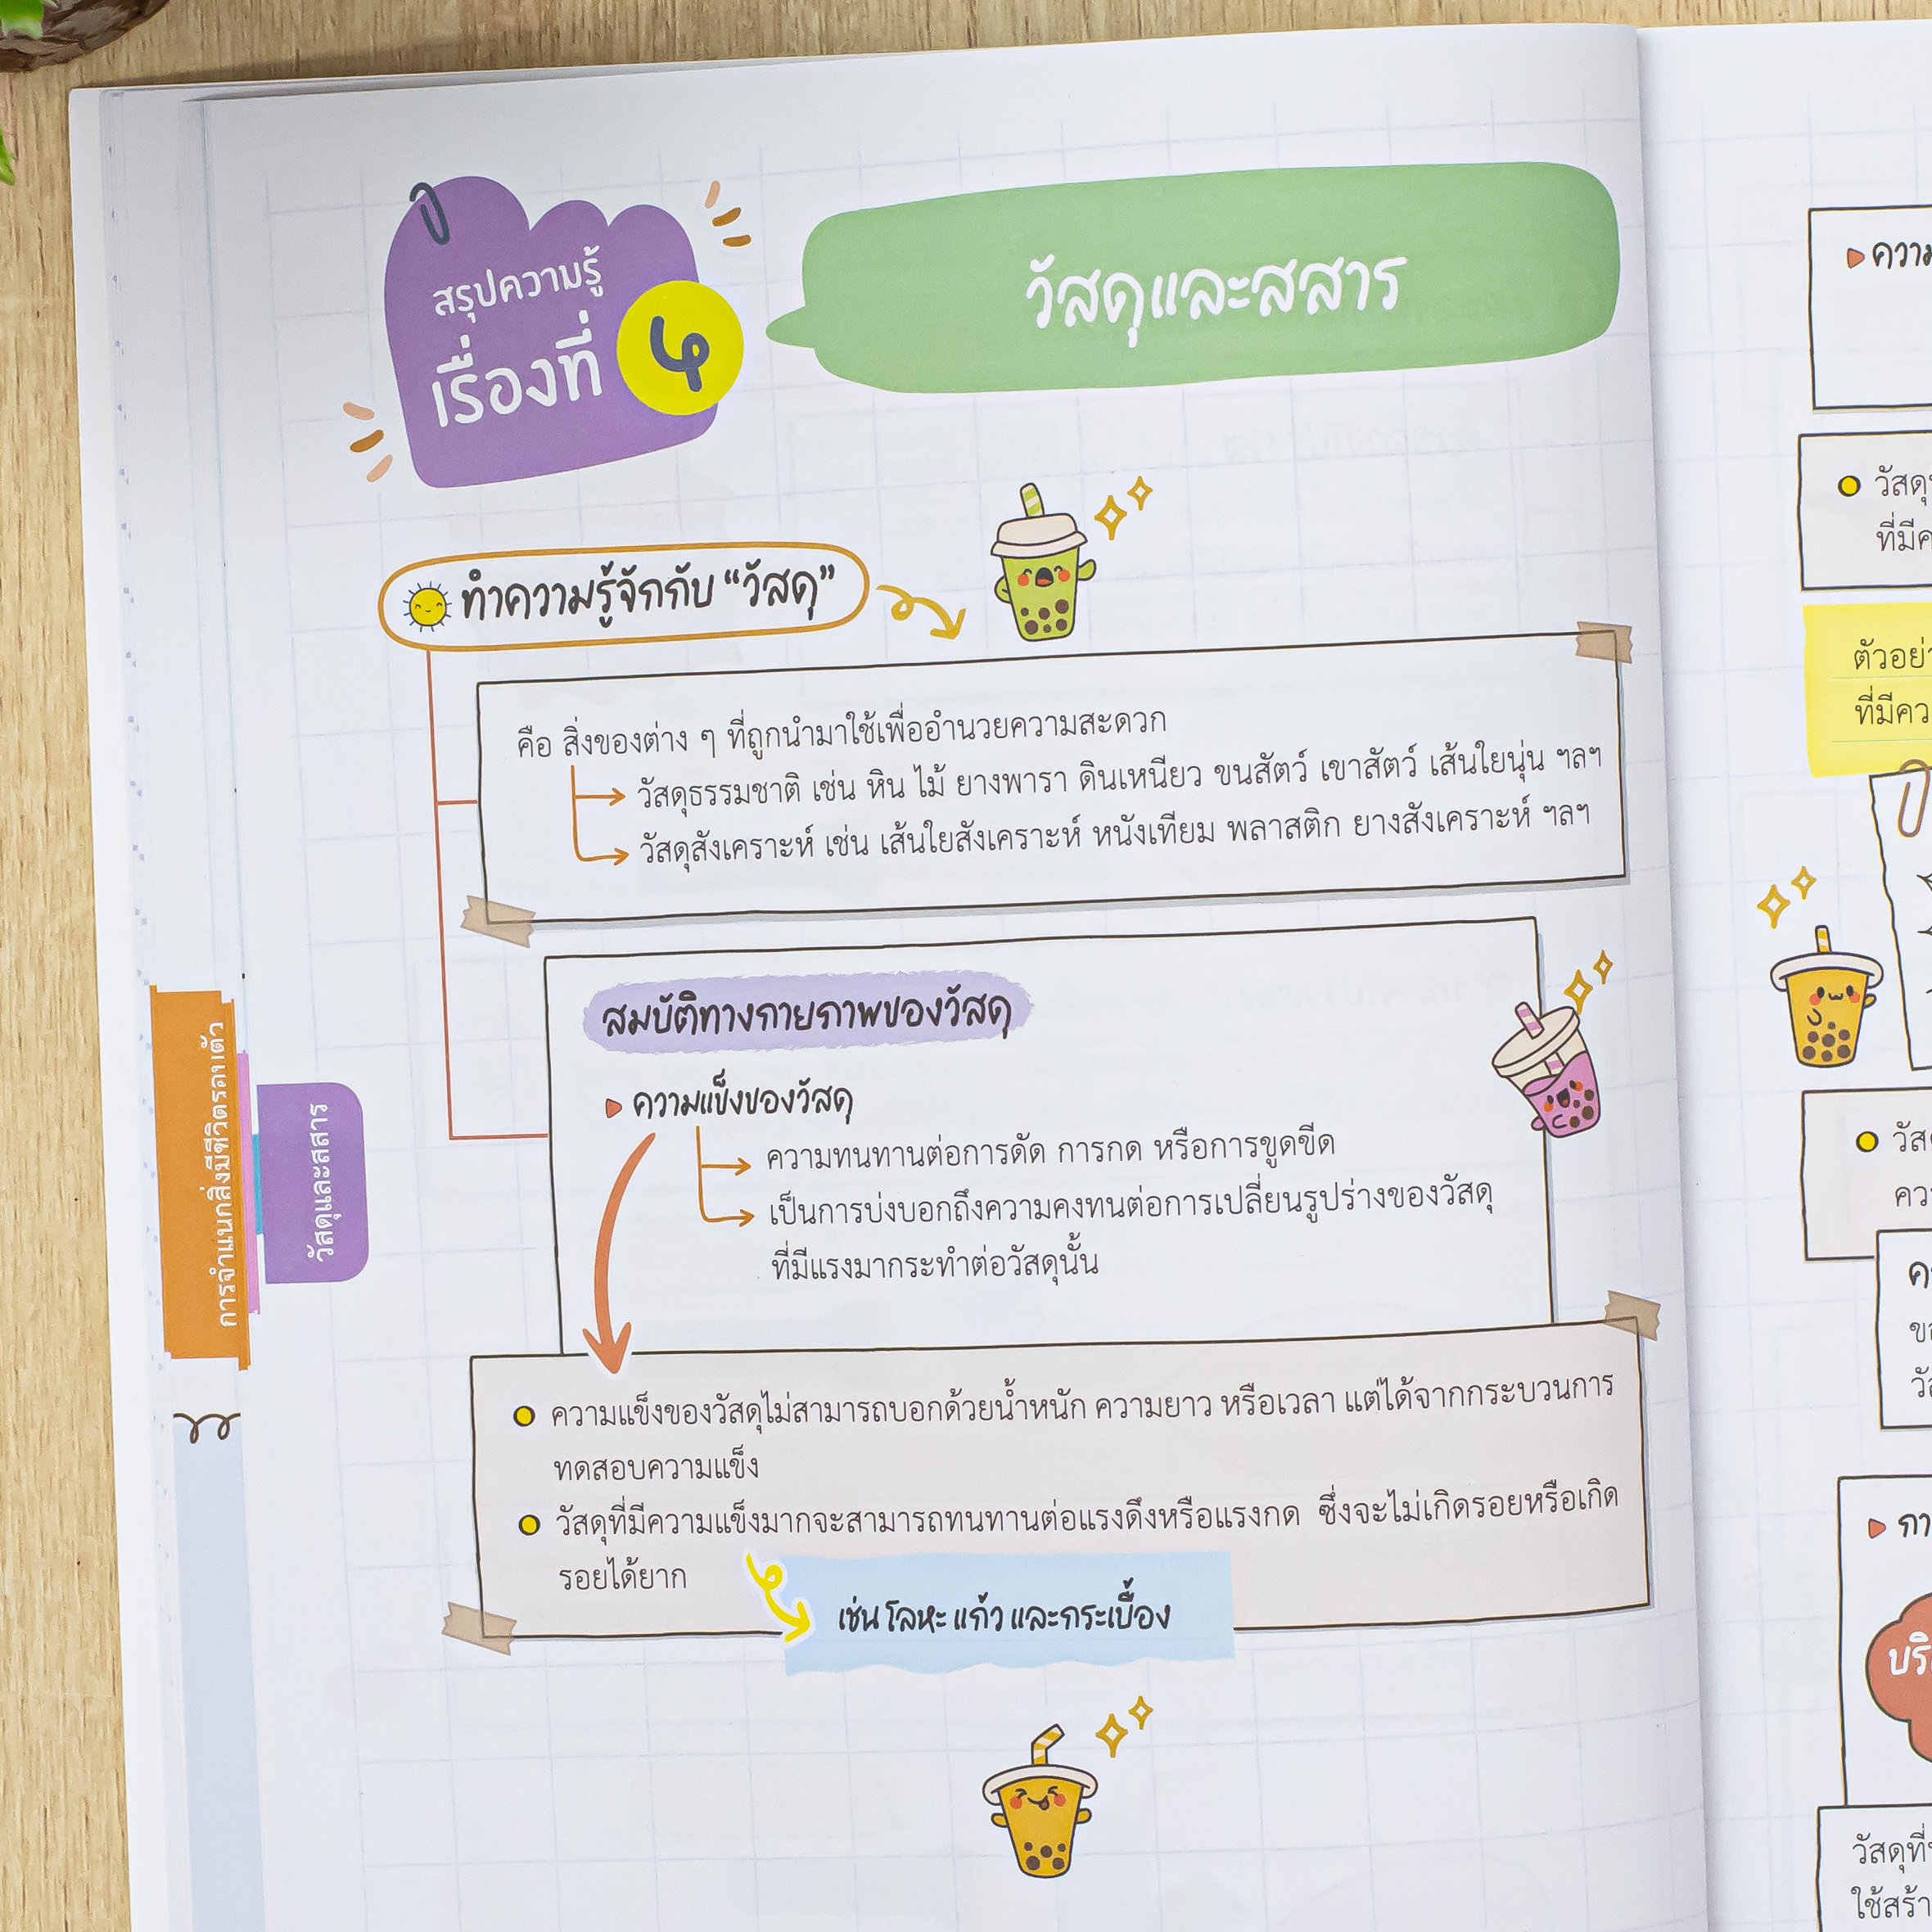 สรุปความรู้
เรื่องที่ 4
วัสดุและสสาร
ทำความรู้จักกับ “วัสดุ”
คือ สิ่งของต่าง ๆ ที่ถูกนำมาใช้เพื่ออำนวยความสะดวก
วัสดุธรรมชาติ เช่น หิน ไม้ ยางพารา ดินเหนียว ขนสัตว์ เขาสัตว์ เส้นใยนุ่น ฯลฯ
วัสดุสังเคราะห์ เช่น เส้นใยสังเคราะห์ หนังเทียม พลาสติก ยางสังเคราะห์ ฯลฯ
สมบัติทางกายภาพของวัสดุ
ความแข็งของวัสดุ
ความทนทานต่อการดัด การกด หรือการขูดขีด
เป็นการบ่งบอกถึงความคงทนต่อการเปลี่ยนรูปร่างของวัสดุ
ที่มีแรงมากระทำต่อวัสดุนั้น
ความแข็งของวัสดุไม่สามารถบอกด้วยน้ำหนัก ความยาว หรือเวลา แต่ได้จากกระบวนการ
ทดสอบความแข็ง
วัสดุที่มีความแข็งมากจะสามารถทนทานต่อแรงดึงหรือแรงกด ซึ่งจะไม่เกิดรอยหรือเกิด
รอยได้ยาก
เช่น โลหะ แก้ว และกระเบื้อง
การจำแนกสิ่งมีชีวิตรอบตัว
วัสดุและสสาร